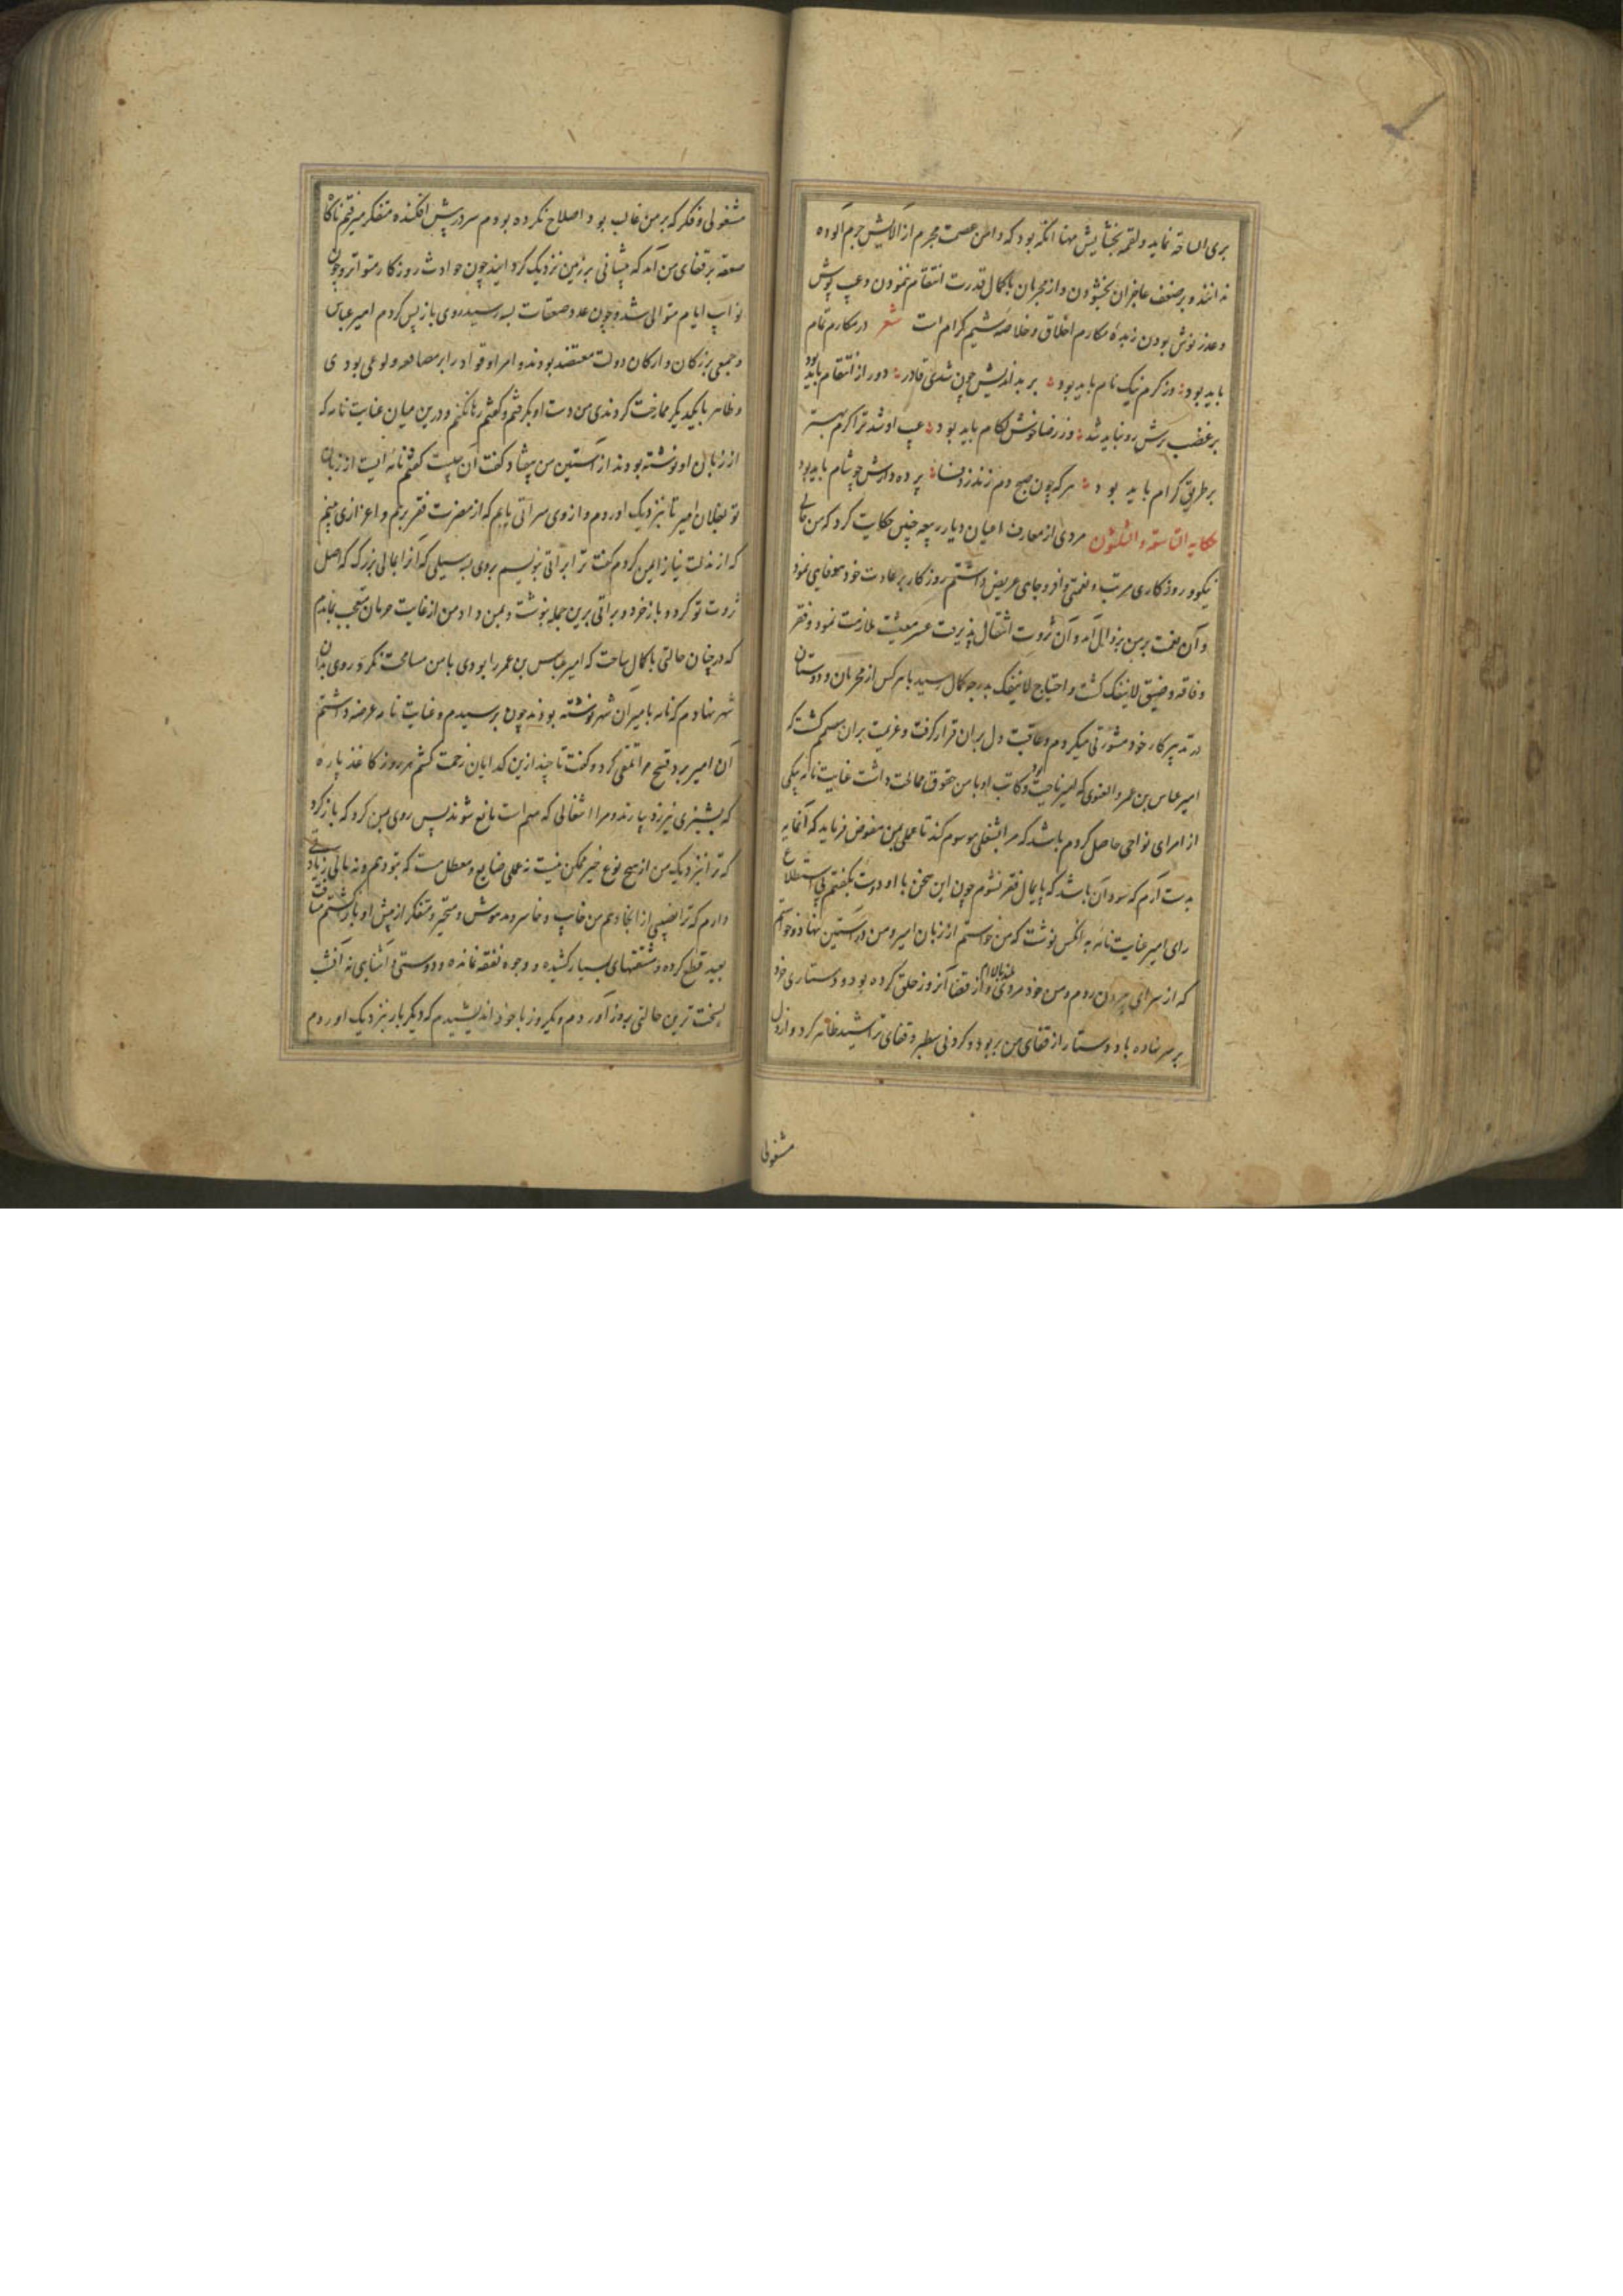 بری الساحة نماید ولقمه بخشایش مهنا انکه بود که دامن عصمت مجرم از آلایش جرم آلوده
ندانند و بر ضعف عاجزان بخشودن و از مجرمان با کمال قدرت انتقام ننمودن و عیب پوش
و عذر نیوش بودن زبدهٔ مکارم اخلاق و خلاصهٔ شیم کرام است شعر در مکارم تمام
باید بود وز کرم نیک نام باید بود بر بد اندیش چون شدی قادر دور از انتقام باید بود
بر غضب ترش رو نباید شد وز رضا خوش کام باید بود عیب او شد ترا کرم بهتر
بر طریق کرام باید بود هر که چون صبح دم زند ز وفا پرده دارش چو شام باید بود
حکایه السادسة و الثلثون مردی از معارف اعیان دیار ربیعه چنین حکایت کرد که من حالی
نیکو و روزکاری مرتب و نعمتی وافر و جاهی عریض داشتم روزکار بر عادت خود بیوفایی نمود
و آن نعمت بر من بزوال آمد و آن ثروت انتقال پذیرفت عسر معیشت ملازمت نمود و فقر
و فاقه و ضیق لاینفک کشت و احتیاج لاینفک بدرجه کمال رسید با هر کس از محرمان و دوستان
در تدبیر کار خود مشورتی میکردم و عاقبت دل بران قرار کرفت و عزیمت بران مصمم کشت که
امیر عباس بن عمرو الغنوی که امیر ناحیت بود و کاتب او با من حقوق ممالحت داشت عنایت نامه بیکی
از امرای نواحی حاصل کردم باشد که مرا بشغلی موسوم کند تا عملی بمن مفوض فرماید که آنمایه
بدست آرم که سود آن باشد که پایمال فقر نشوم چون این سخن با او دوست بکفتم بی استطلاع
رای امیر عنایت نامه به انکس نوشت که من خواستم از زبان امیر و من در آستین نهادم و خواستم
که از سرای بیرون روم و من خود مردی بلند بالا ام و از قضا آنروز حلق کرده بودم و دستاری خود
بر سر نهاده باد دستار از قفای من بربود و کردنی سطبر و قفای تراشیده ظاهر کرد و از دل
مشغولی
مشغولی و فکر که بر من غالب بود اصلاح نکرده بودم سر در پیش افکنده متفکر میرفتم ناکاه
صفعه بر قفای من آمد که پیشانی بر زمین نزدیک کرد ایند چون حوادث روزکار متواتر و چون
نوایب ایام متوالی شد و چون عدد صفعات بسه رسید روی باز پس کردم امیر عباس
و جمعی بزرکان و ارکان دولت معتضد بودند و امرا و قواد را بر مصافعه ولوعی بودی
و ظاهر با یکدیکر ممازحت کردندی من دست او بکرفتم و کفتم رها نکنم و درین میان عنایت نامه که
از زبان او نوشته بودند از آستین من بیفتاد کفت آن چیست کفتم نامه ایست از زبان
تو بفلان امیر تا بنزدیک او روم و از وی سر اتی یابم که از مضرت فقر برهم و اعزازی بینم
که از مذلت نیاز ایمن کردم کفت ترا براتی بنویسم بروی بسیلی که آنرا بمالی بزرک که اصل
ثروت تو کردد و بازخرد و براتی برین جمله بنوشت و بمن داد من از غایت حرمان متعجب بماندم
که در چنان حالتی با کمال سماحت که امیر عباس بن عمر را بودی با من مسامحت نکرد و روی بدان
شهر نهادم که نامه بامیر آن شهر نوشته بودند چون برسیدم و عنایت نامه عرضه داشتم
آن امیر برد قبیح مرا تلقی کرد و کفت تا چند ازین کدایان زحمت کشم هر روز کاغذ پاره
که بپشیزی نیرزد بیارند و مرا از اشغالی که مهم است مانع شوند پس روی بمن کرد که باز کرد
که ترا نزدیک من از هیچ نوع خیر ممکن نیست نه عملی ضایع و معطل مست که بتو دهم و نه مالی زیادتی
دارم که ترا نصیبی از انجا دهم من خایب و خاسر و مدهوش و متحیر و متفکر از پیش او بازکشتم مسافت
بعید قطع کرده و مشقتهای بسیار کشیده و وجوه نفقه نمانده و دوستی و آشنایی نه آنشب
بسخت ترین حالتی بروز آوردم و یکروز با خود اندیشیدم که دیکر بار بنزدیک او روم